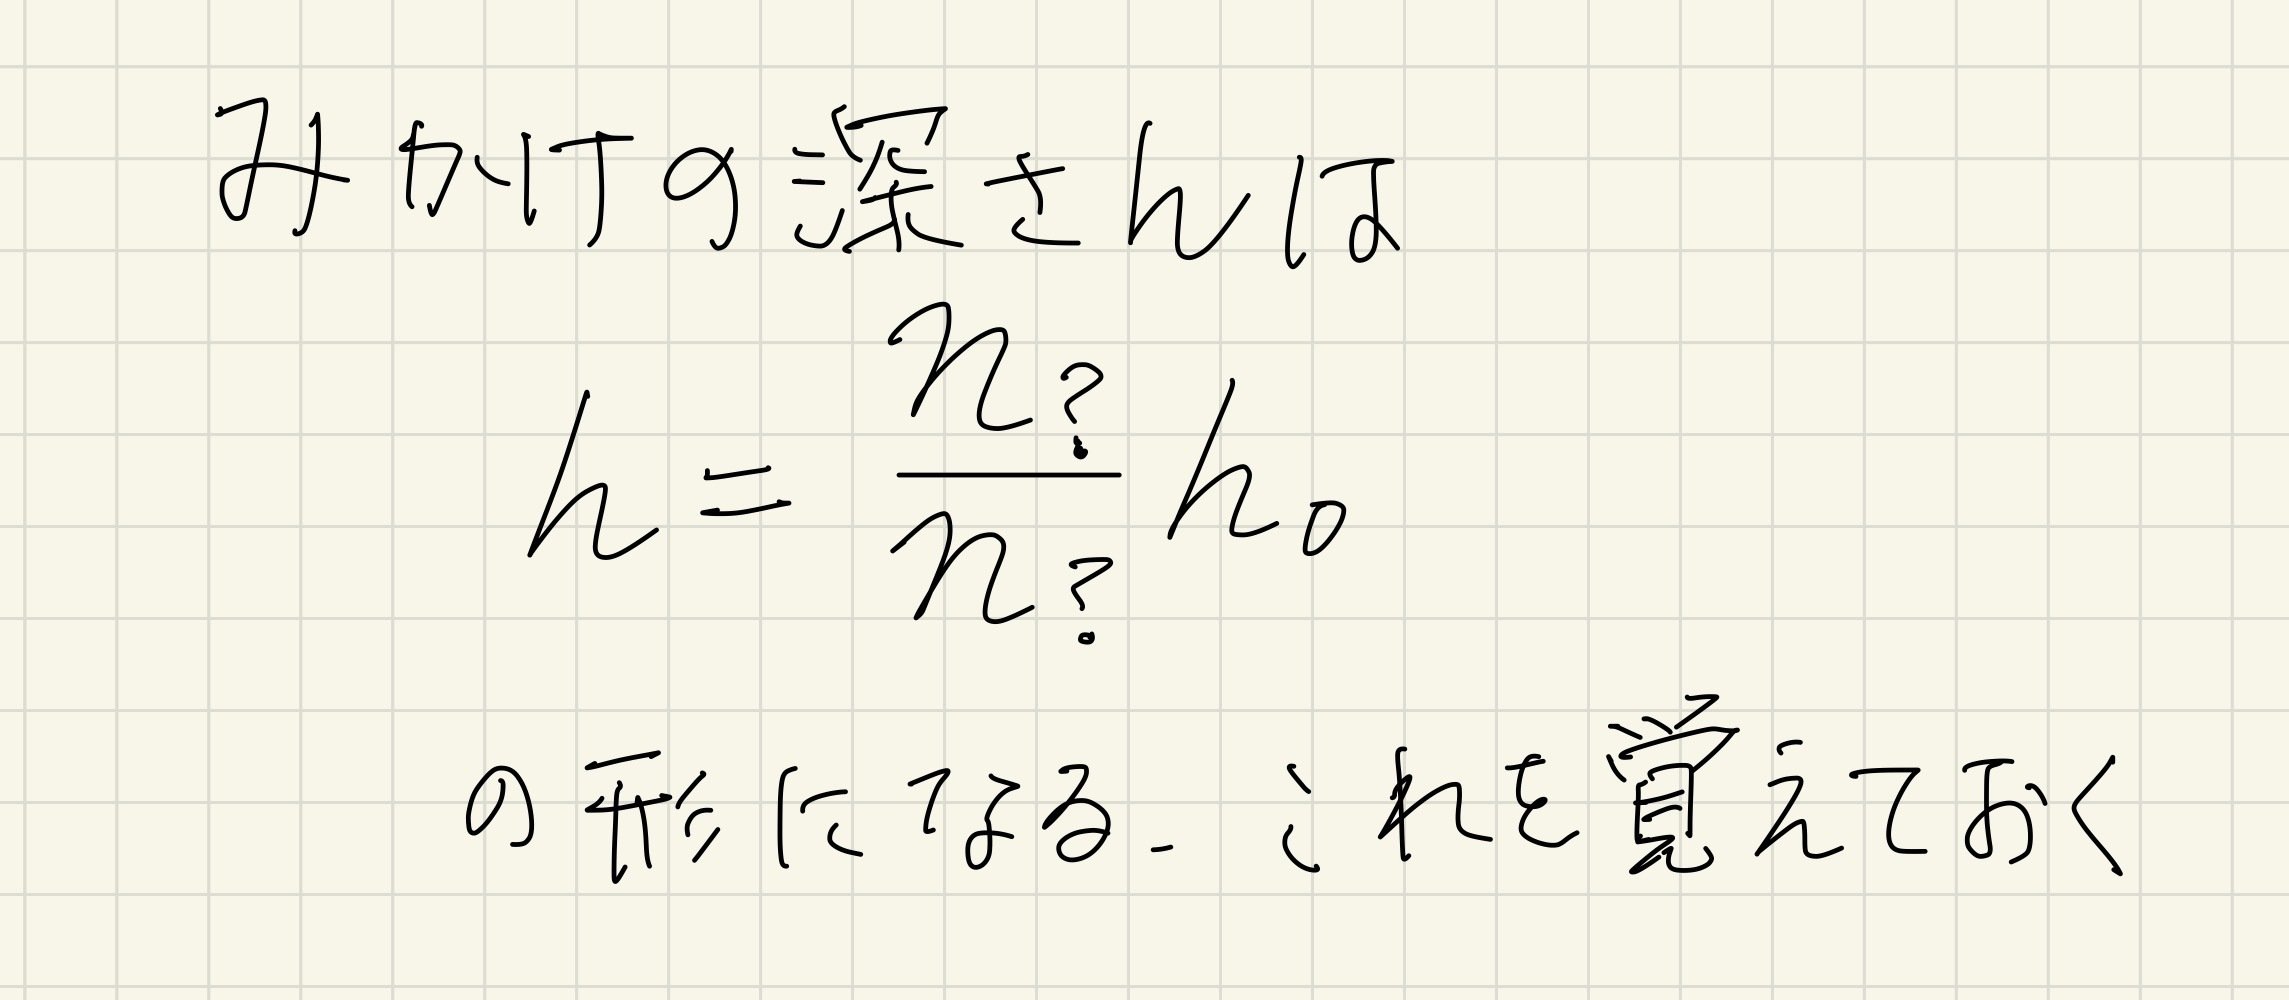 みかけの深さhは
h = n?/n? h₀
の形になる. これを覚えておく